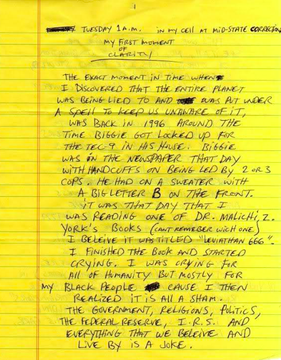 TUESDAY 1 A.M. IN MY CELL AT MID-STATE CORRECTION
MY FIRST MOMENT
OF
CLARITY
THE EXACT MOMENT IN TIME WHEN
I DISCOVERED THAT THE ENTIRE PLANET
WAS BEING LIED TO AND WAS PUT UNDER
A SPELL TO KEEP US UNAWARE OF IT,
WAS BACK IN 1996 AROUND THE
TIME BIGGIE GOT LOCKED UP FOR
THE TEC-9 IN HIS HOUSE. BIGGIE
WAS IN THE NEWSPAPER THAT DAY
WITH HANDCUFFS ON BEING LED BY 2 OR 3
COPS. HE HAD ON A SWEATER WITH
A BIG LETTER B ON THE FRONT.
IT WAS THAT DAY THAT I
WAS READING ONE OF DR. MALICHI, Z.
YORK'S BOOKS (CANT REMEMBER WICH ONE)
I BELEIVE IT WAS TITLED "LEVIATHAN 666".
I FINISHED THE BOOK AND STARTED
CRYING. I WAS CRYING FOR
ALL OF HUMANITY BUT MOSTLY FOR
MY BLACK PEOPLE CAUSE I THEN
REALIZED IT IS ALL A SHAM.
THE GOVERNMENT, RELIGIONS, POLITICS,
THE FEDERAL RESERVE, I.R.S. AND
EVERYTHING THAT WE BELEIVE AND
LIVE BY IS A JOKE.